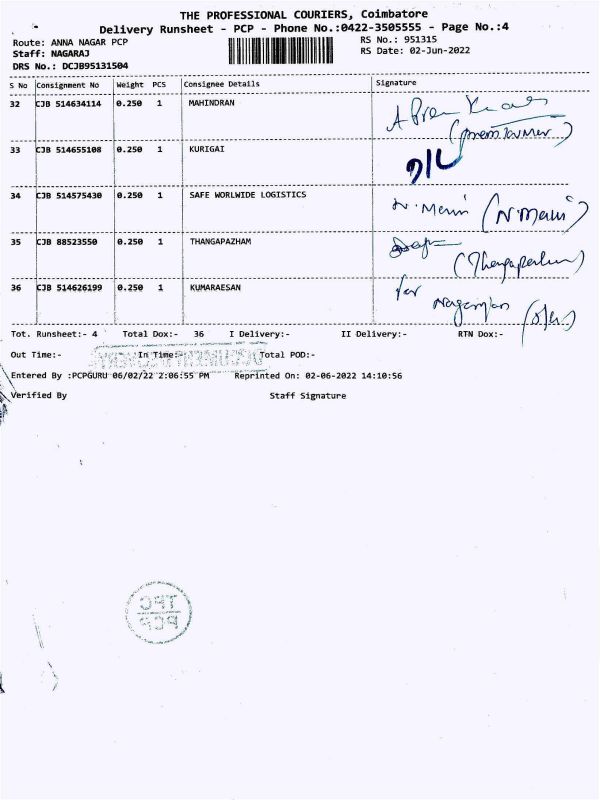 THE PROFESSIONAL COURIERS, Coimbatore
Delivery Runsheet - PCP - Phone No.:0422-3505555 - Page No.:4
Route: ANNA NAGAR PCP RS No.: 951315
Staff: NAGARAJ RS Date: 02-Jun-2022
DRS No.: DCJB95131504
S No Consignment No Weight PCS Consignee Details Signature
32 CJB 514634114 0.250 1 MAHINDRAN
(premkumar)
33 CJB 514655108 0.250 1 KURIGAI
34 CJB 514575430 0.250 1 SAFE WORLWIDE LOGISTICS
35 CJB 88523550 0.250 1 THANGAPAZHAM
36 CJB 514626199 0.250 1 KUMARAESAN for
Tot. Runsheet:- 4 Total Dox:- 36 I Delivery:- II Delivery:- RTN Dox:-
Out Time:- In Time:- Total POD:-
Entered By :PCPGURU 06/02/22 2:06:55 PM Reprinted On: 02-06-2022 14:10:56
Verified By Staff Signature
TPC
PCP